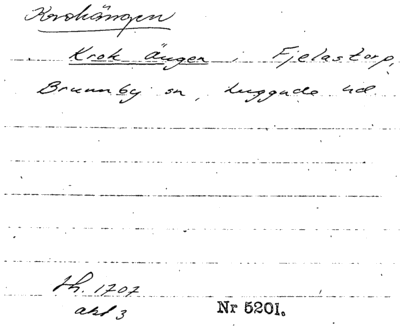 Krokängen
Krok ängen i Fjelastorp,
Brunnby sn, Luggude hd
Lh. 1707
akt 3
Nr 5201.